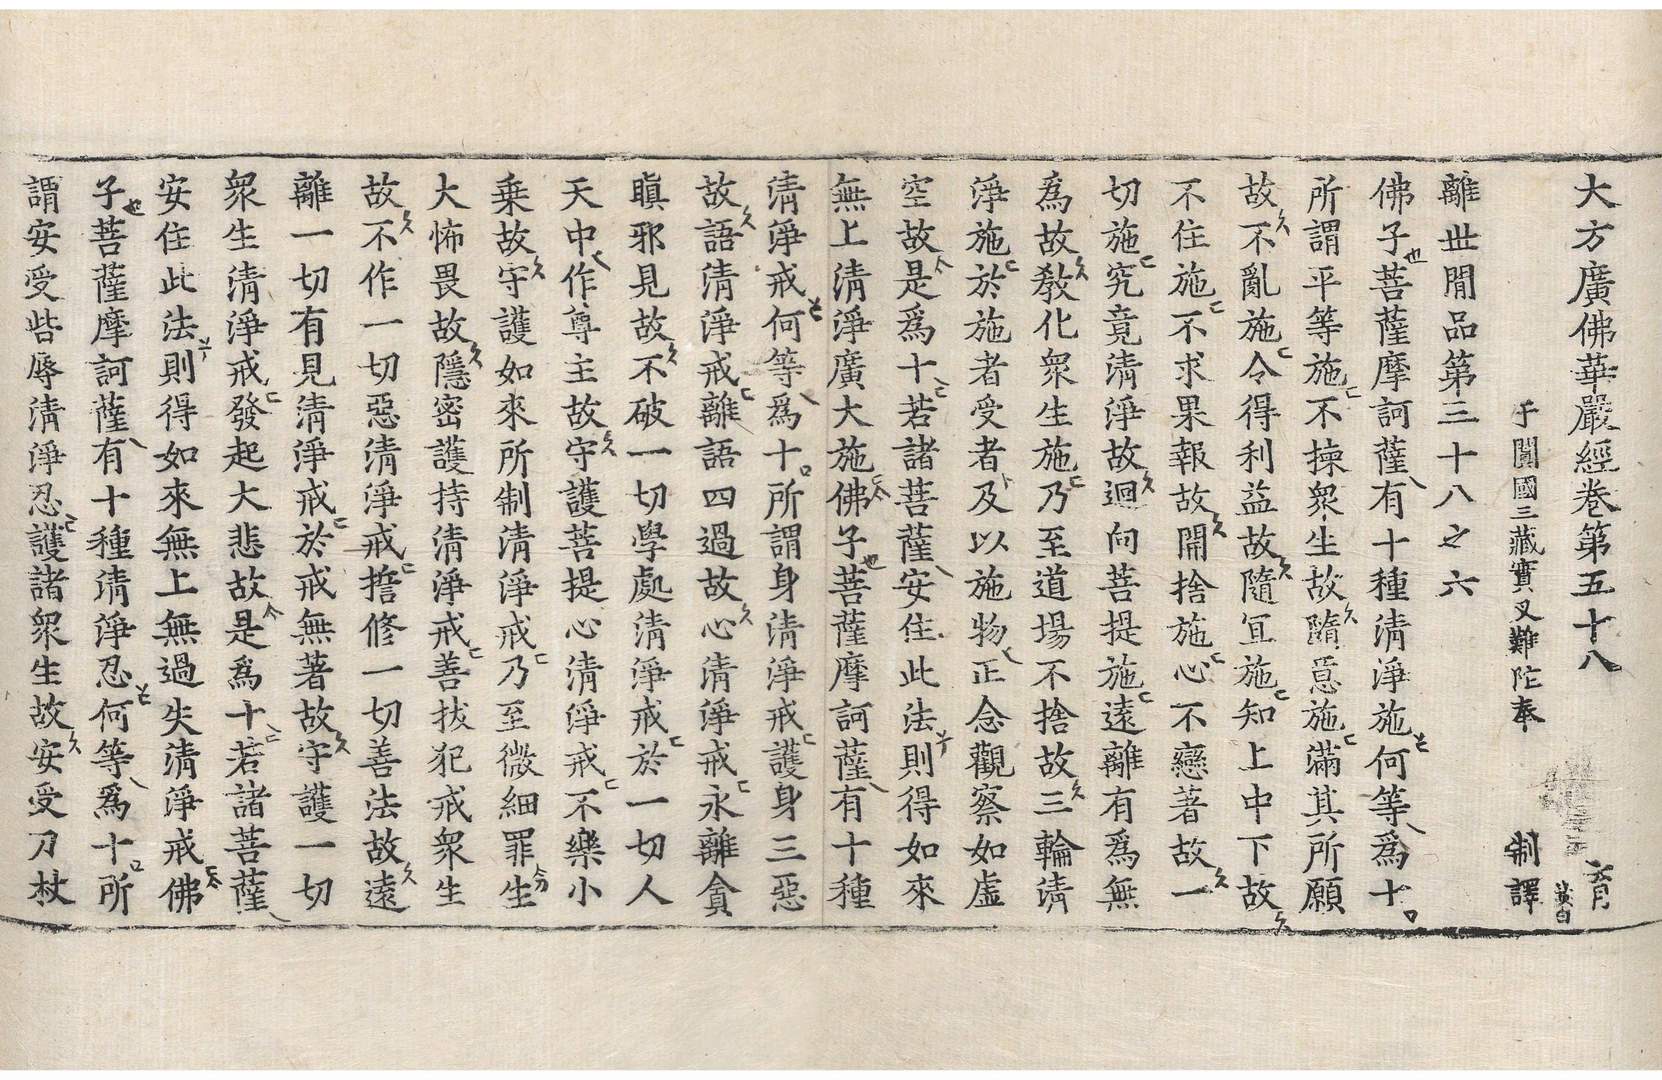 大方廣佛華嚴經卷第五十八
于闐國三藏實叉難陀奉 制譯
離世間品第三十八之六
佛子菩薩摩訶薩有十種清淨施何等爲十
所謂平等施不揀衆生故隨意施滿其所願
故不亂施令得利益故隨宜施知上中下故
不住施不求果報故開捨施心不戀著故一
切施究竟清淨故迴向菩提施遠離有爲無
爲故教化衆生施乃至道場不捨故三輪清
淨施於施者受者及以施物正念觀察如虛
空故是爲十若諸菩薩安住此法則得如來
無上清淨廣大施佛子菩薩摩訶薩有十種
清淨戒何等爲十所謂身清淨戒護身三惡
故語清淨戒離語四過故心清淨戒永離貪
瞋邪見故不破一切學處清淨戒於一切人
天中作尊主故守護菩提心清淨戒不樂小
乗故守護如來所制清淨戒乃至微細罪生
大怖畏故隱密護持清淨戒善拔犯戒衆生
故不作一切惡清淨戒誓修一切善法故遠
離一切有見清淨戒於戒無著故守護一切
衆生清淨戒發起大悲故是爲十若諸菩薩
安住此法則得如來無上無過失清淨戒佛
子菩薩摩訶薩有十種清淨忍何等爲十所
謂安受呰辱清淨忍護諸衆生故安受刀杖